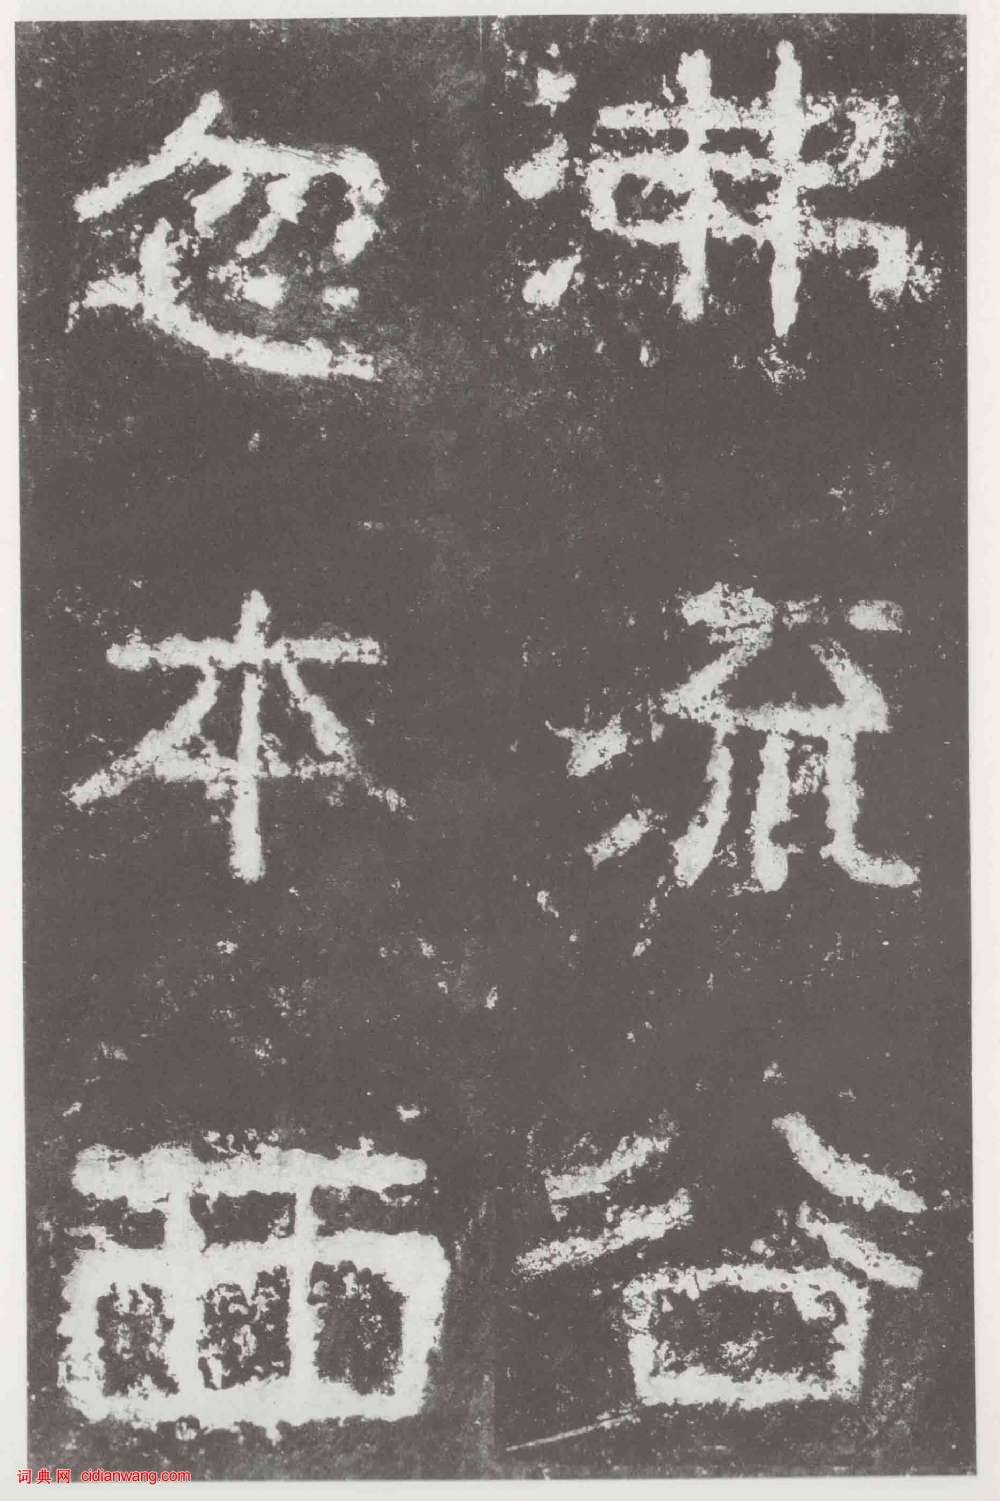 沸流谷
忽本西
词典网 cidianwang.com